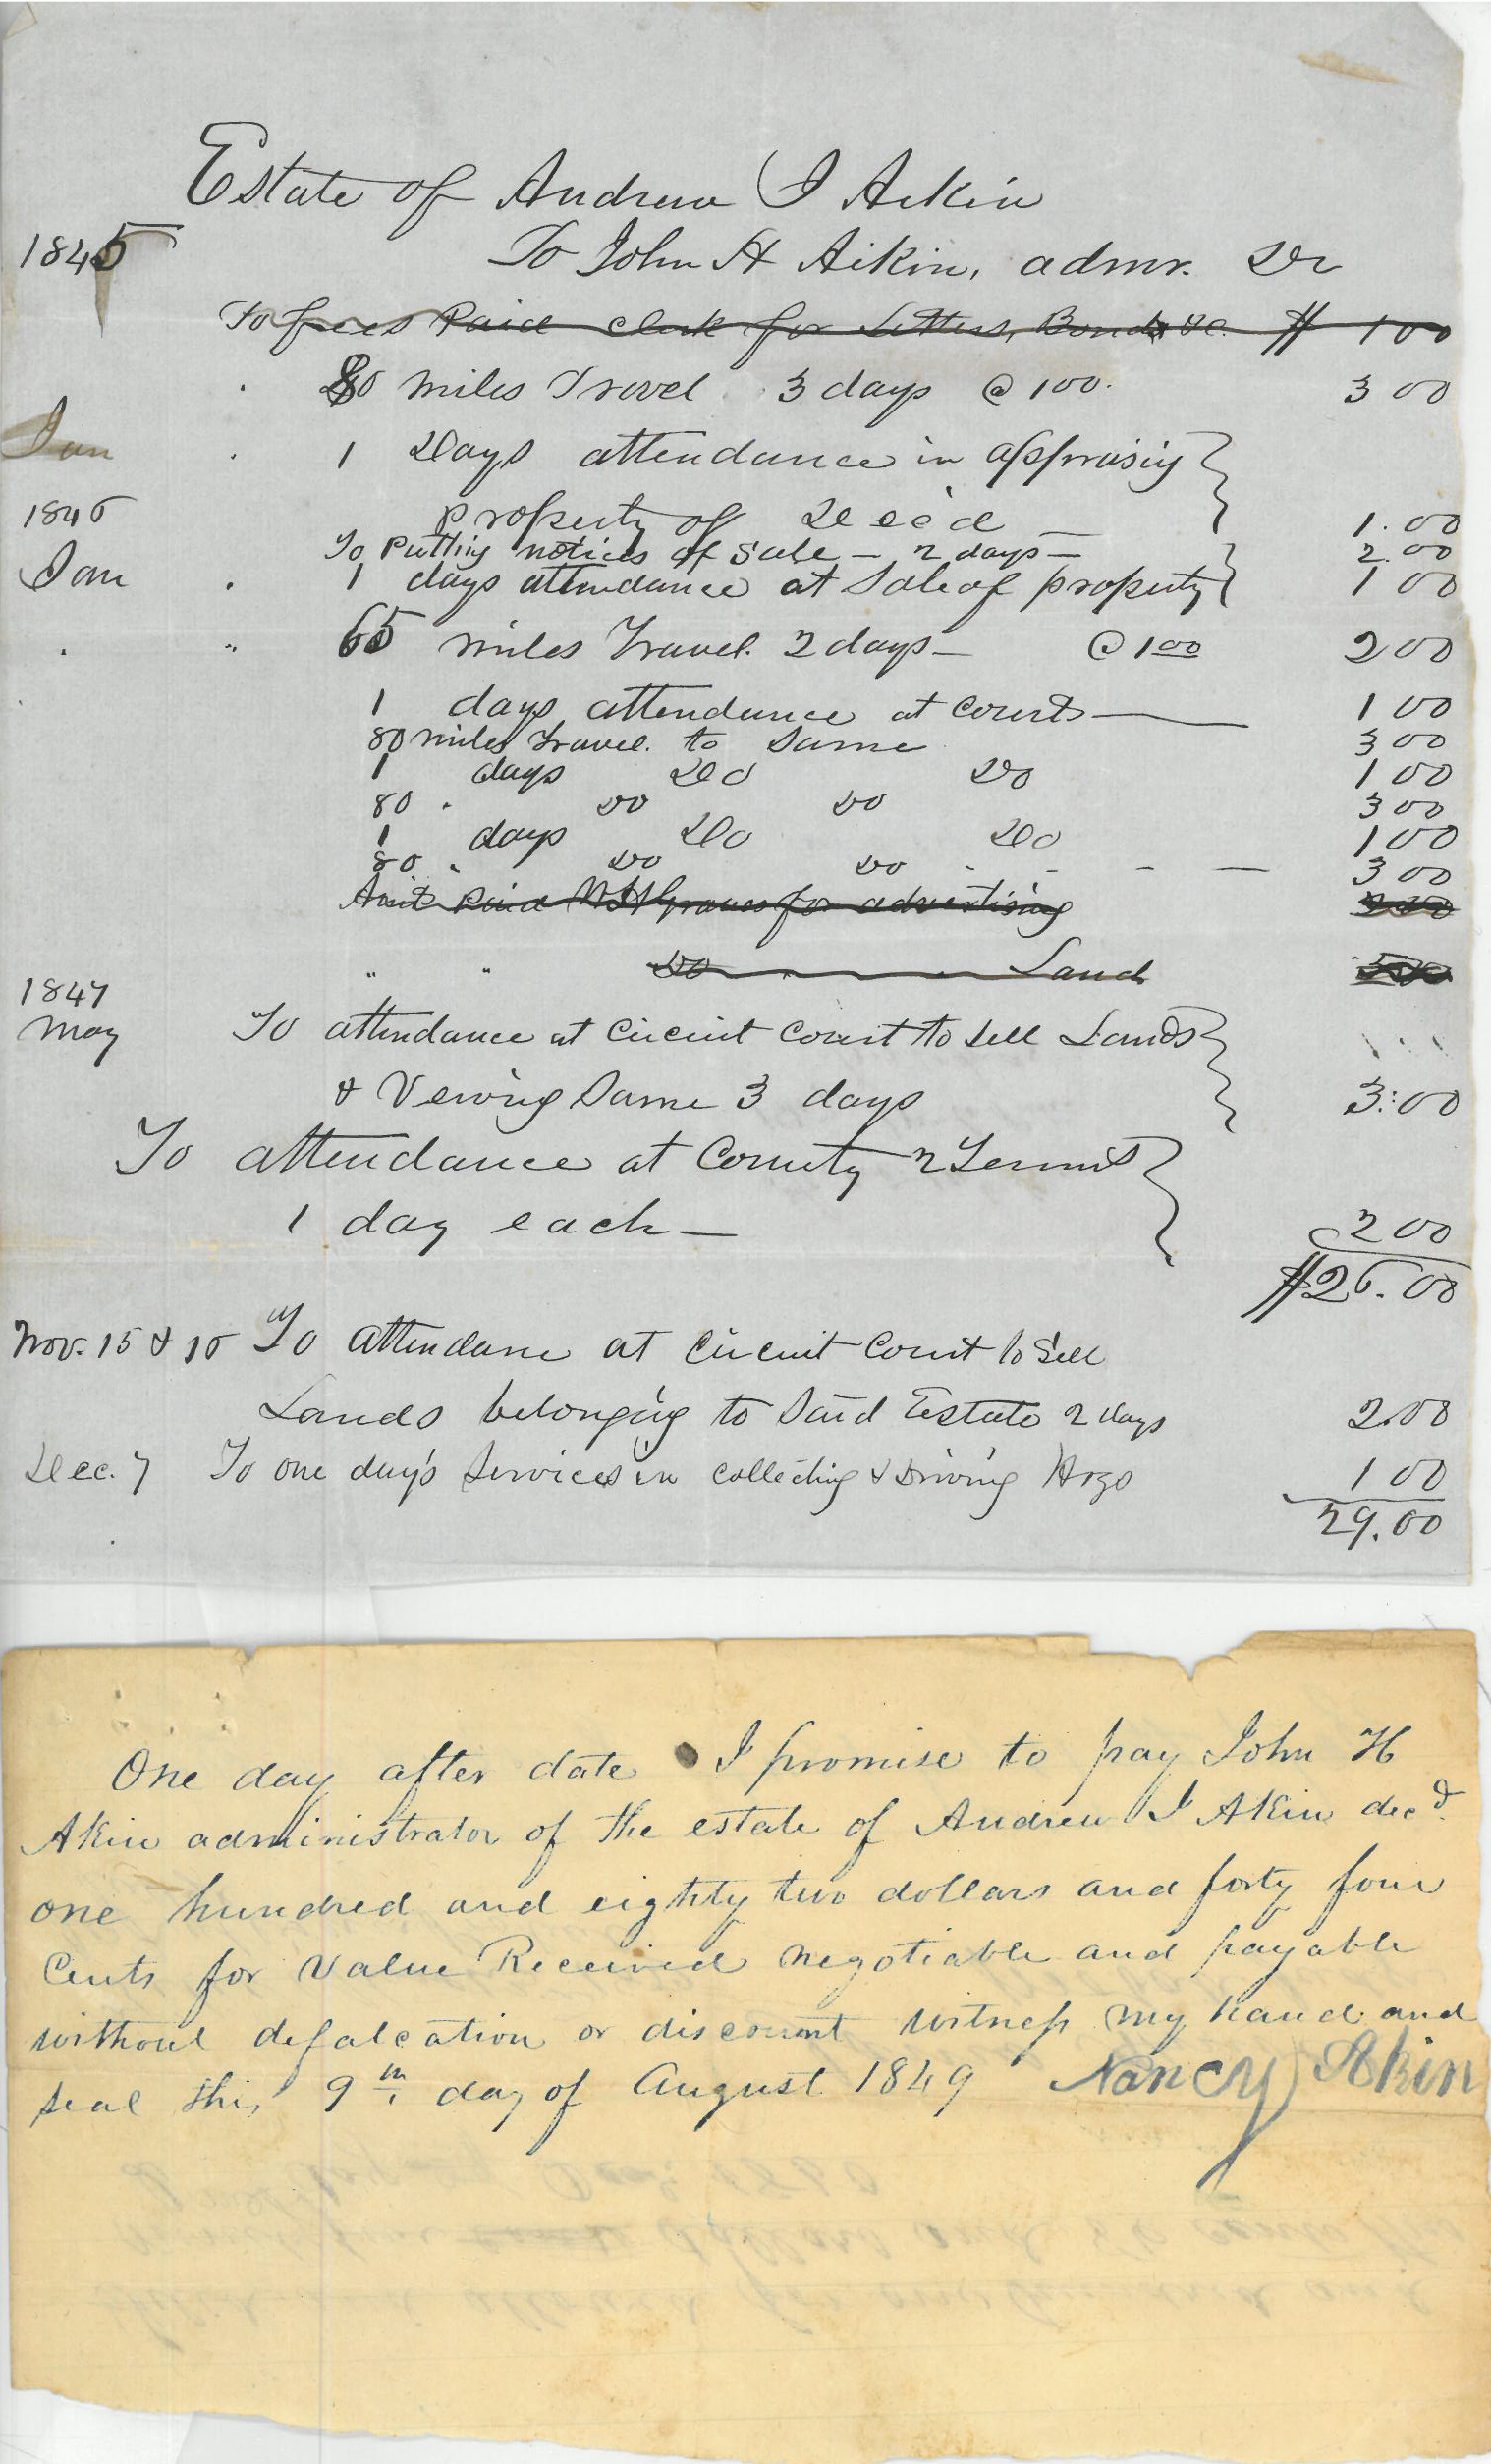 Estate of Andrew J Aikin
1845 To John H Aikin, admr. Dr
To fees Paid Clerk for Letters, Bonds &c. $ 1 00
80 miles Travel 3 days @ 1 00. 3 00
Jan 1 Days attendance in appraisig
1846 property of Dece'd — 1.00
To Putting notices of Sale — 2 days — 2.00
Jan 1 days attendance at Sale of property 1 00
" 65 miles Travel. 2 days — @ 1 00 2 00
1 days attendance at Courts — 1 00
80 miles Travel. to Same 3 00
1 days Do Do 1 00
80 " Do Do 3 00
1 days Do Do 1 00
80 " Do Do - - — — 3 00
Amt Paid W H Graves for advertising
" " Do " Land
1847
May To attendance at Circuit Court to Sell Lands
& Vewing Same 3 days 3:00
To attendance at County 2 Terms
1 day each — 2 00
$26.00
Nov. 15 & 16 To attendance at Circuit Court to Sell
Lands belonging to Said Estate 2 days 2.00
Dec. 7 To one day's Services in Collecting & Driving Hogs 1 00
29.00
One day after date I promise to pay John H
Akin administrator of the estate of Andrew J Akin decd.
one hundred and eighty two dollars and forty four
Cents for Value Received negotiable and payable
without defalcation or discount witness my hand and
seal this 9th day of August 1849 Nancy Akin